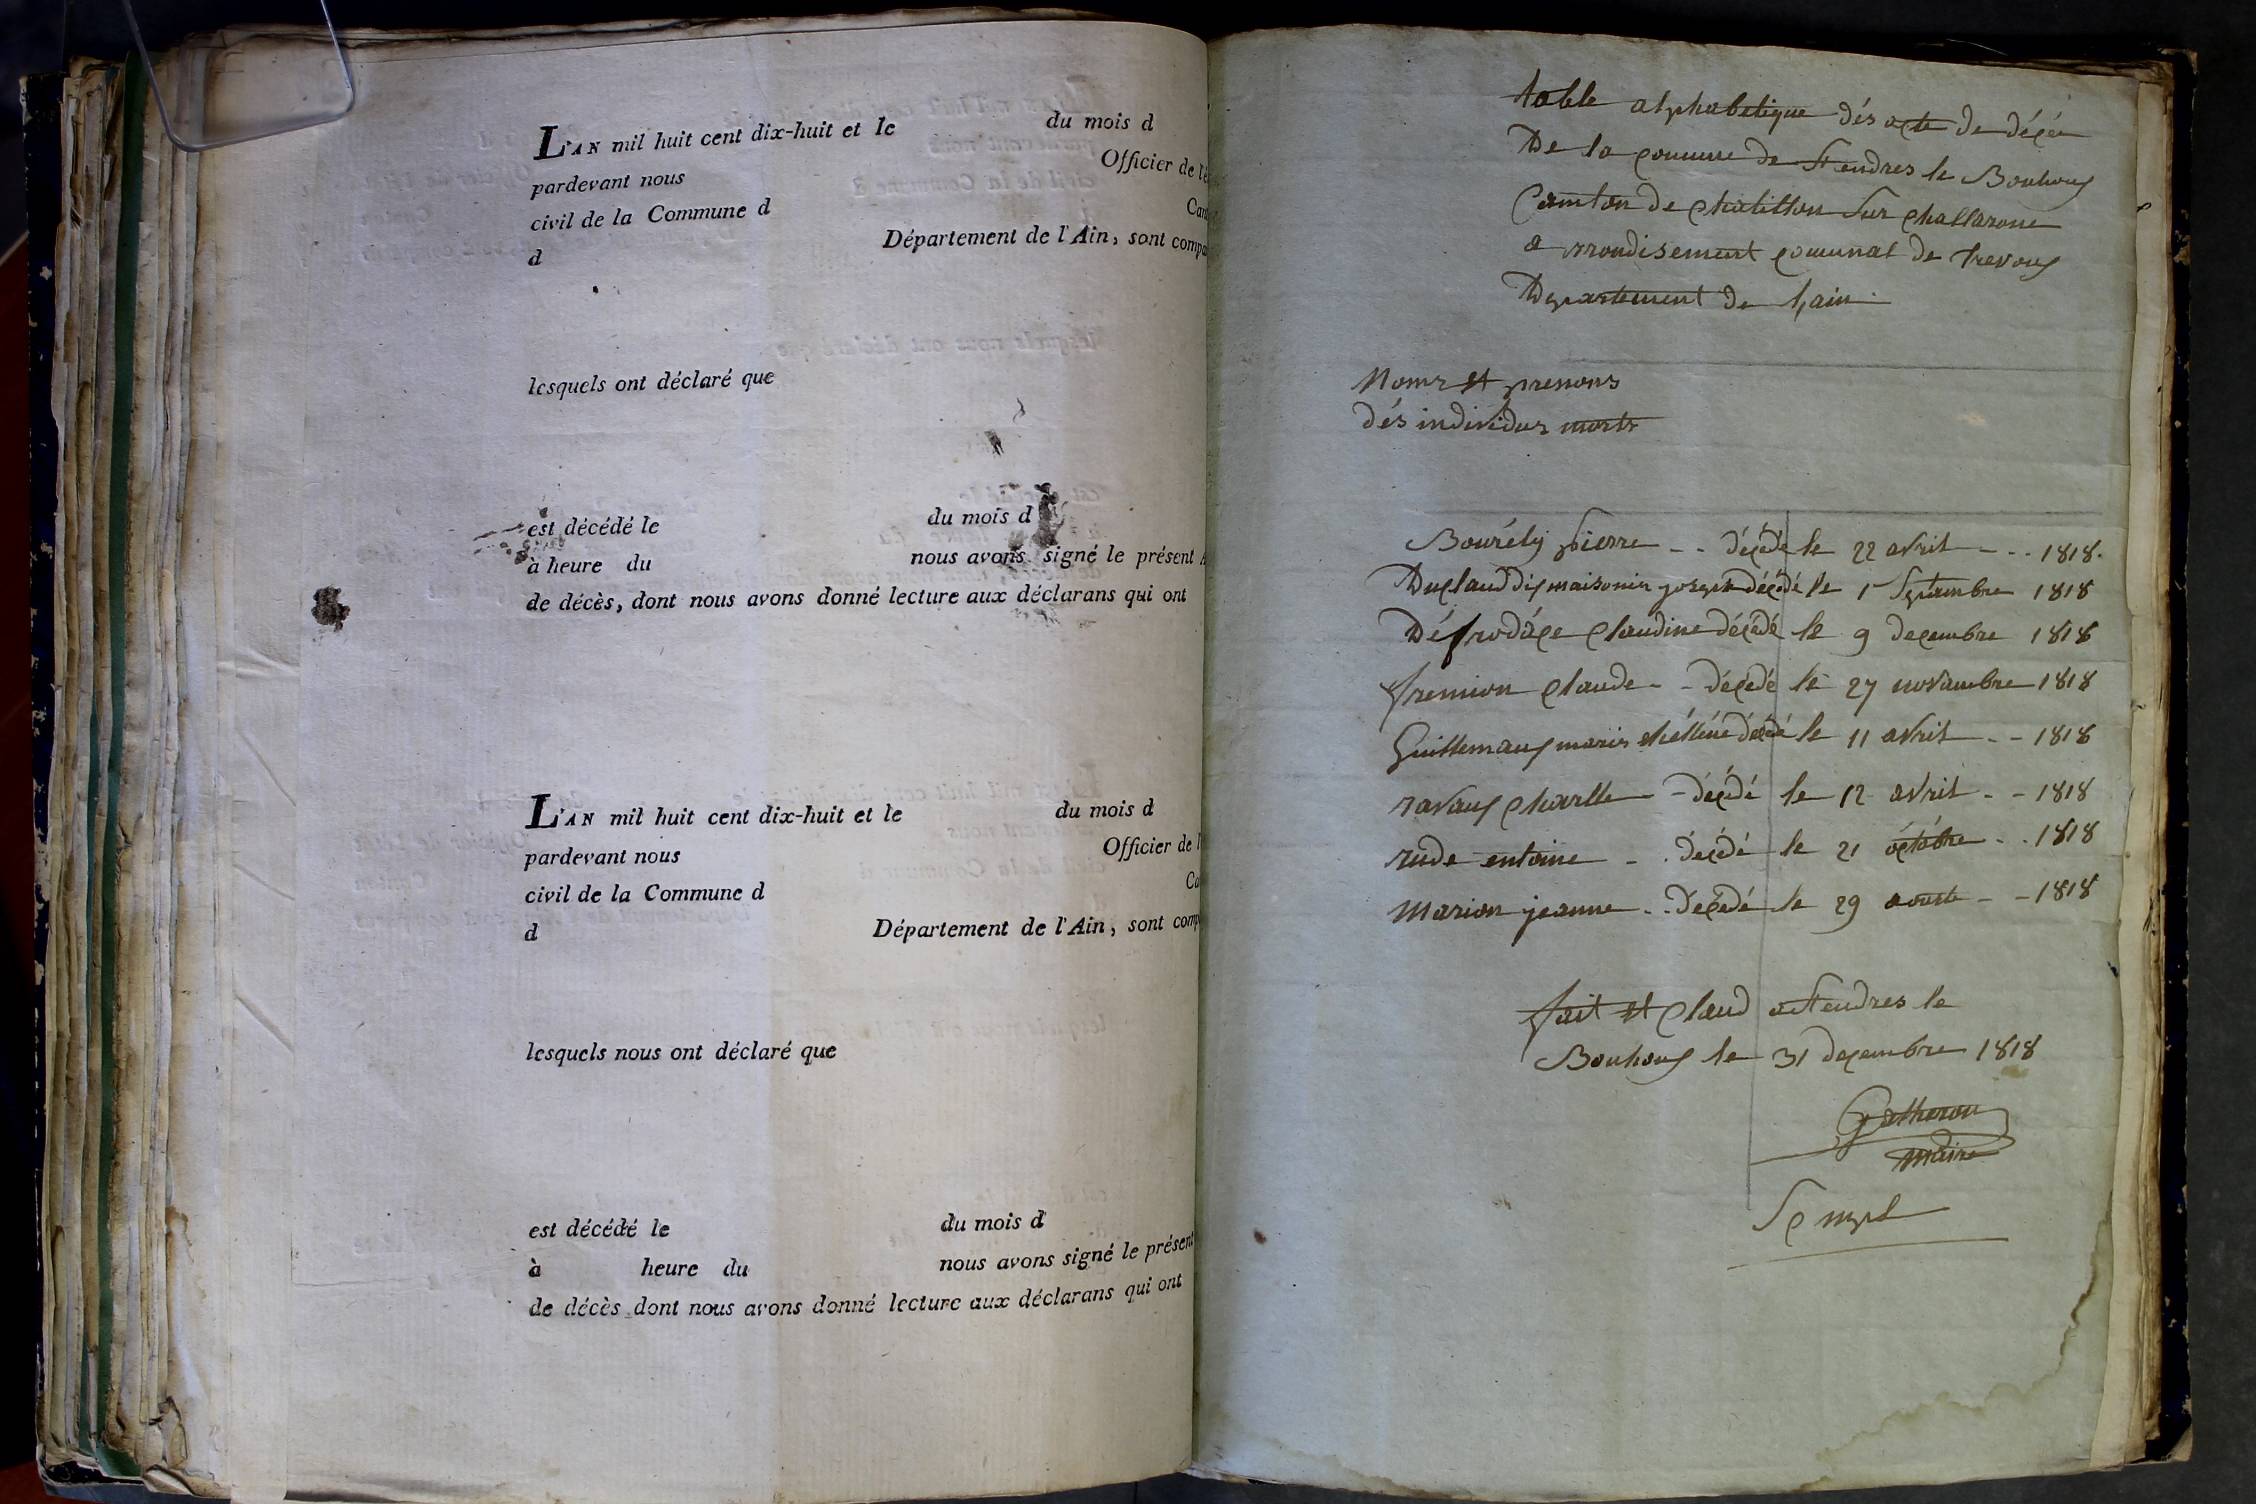 L'AN mil huit cent dix-huit et le du mois d
pardevant nous Officier de l'é
civil de la Commune d Can
d Département de l'Ain, sont compa
lesquels ont déclaré que
est décédé le du mois d
à heure du nous avons signé le présent A
de décès, dont nous avons donné lecture aux déclarans qui ont
L'AN mil huit cent dix-huit et le du mois d
pardevant nous Officier de l
civil de la Commune d Ca
d Département de l'Ain, sont comp
lesquels nous ont déclaré que
est décédé le du mois d
à heure du nous avons signé le présent
de décès dont nous avons donné lecture aux déclarans qui ont
table alphabetique dés acte de déçée
De la commune de St endres le Bouhoux
Camton de chatillon sur challarone
a rrondisement communal de trevoux
Departement de lain
Noms et prenons
dés individus morts
Bourély pierre - - décédé le 22 avril - - - 1818.
Duclaud dit maisonir joseph décédé le 1 Septambre 1818
Défrodâçe claudine décédé le 9 decembre 1818
fremion claude - - décédé le 27 novambre 1818
Guillemaux marie décédé le 11 avril - - 1818
ravaux charlle - décédé le 12 avril - - 1818
rude entoine - . décédé le 21 octobre - . 1818
Marion jeanne - . décédé le 29 aouste - - 1818
fait et claud a St endres le
Bouhoux le 31 decembre 1818
Gatheron
Maire